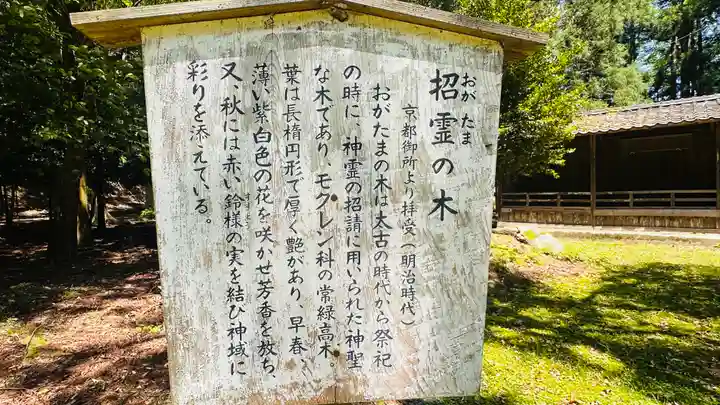 おがたま
招霊の木
京都御所より拝受（明治時代）
おがたまの木は太古の時代から祭祀
の時に、神霊の招請に用いられた神聖
な木であり、モクレン科の常緑高木。
葉は長楕円形で厚く艶があり、早春、
薄い紫白色の花を咲かせ芳香を放ち、
又、秋には赤い鈴様の実を結び神域に
彩りを添えている。